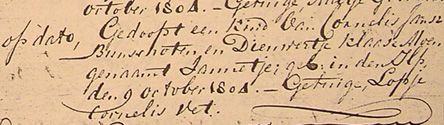 october 1804. — Getuige,
op dato, Gedoopt een kind van Cornelis Janse
Bunschoten en Dieuwertje Klaase Moen
genaamt Jannetje; geb. in den Ilp,
den 9 october 1804. — Getuige, Lopje
Cornelis Vet.